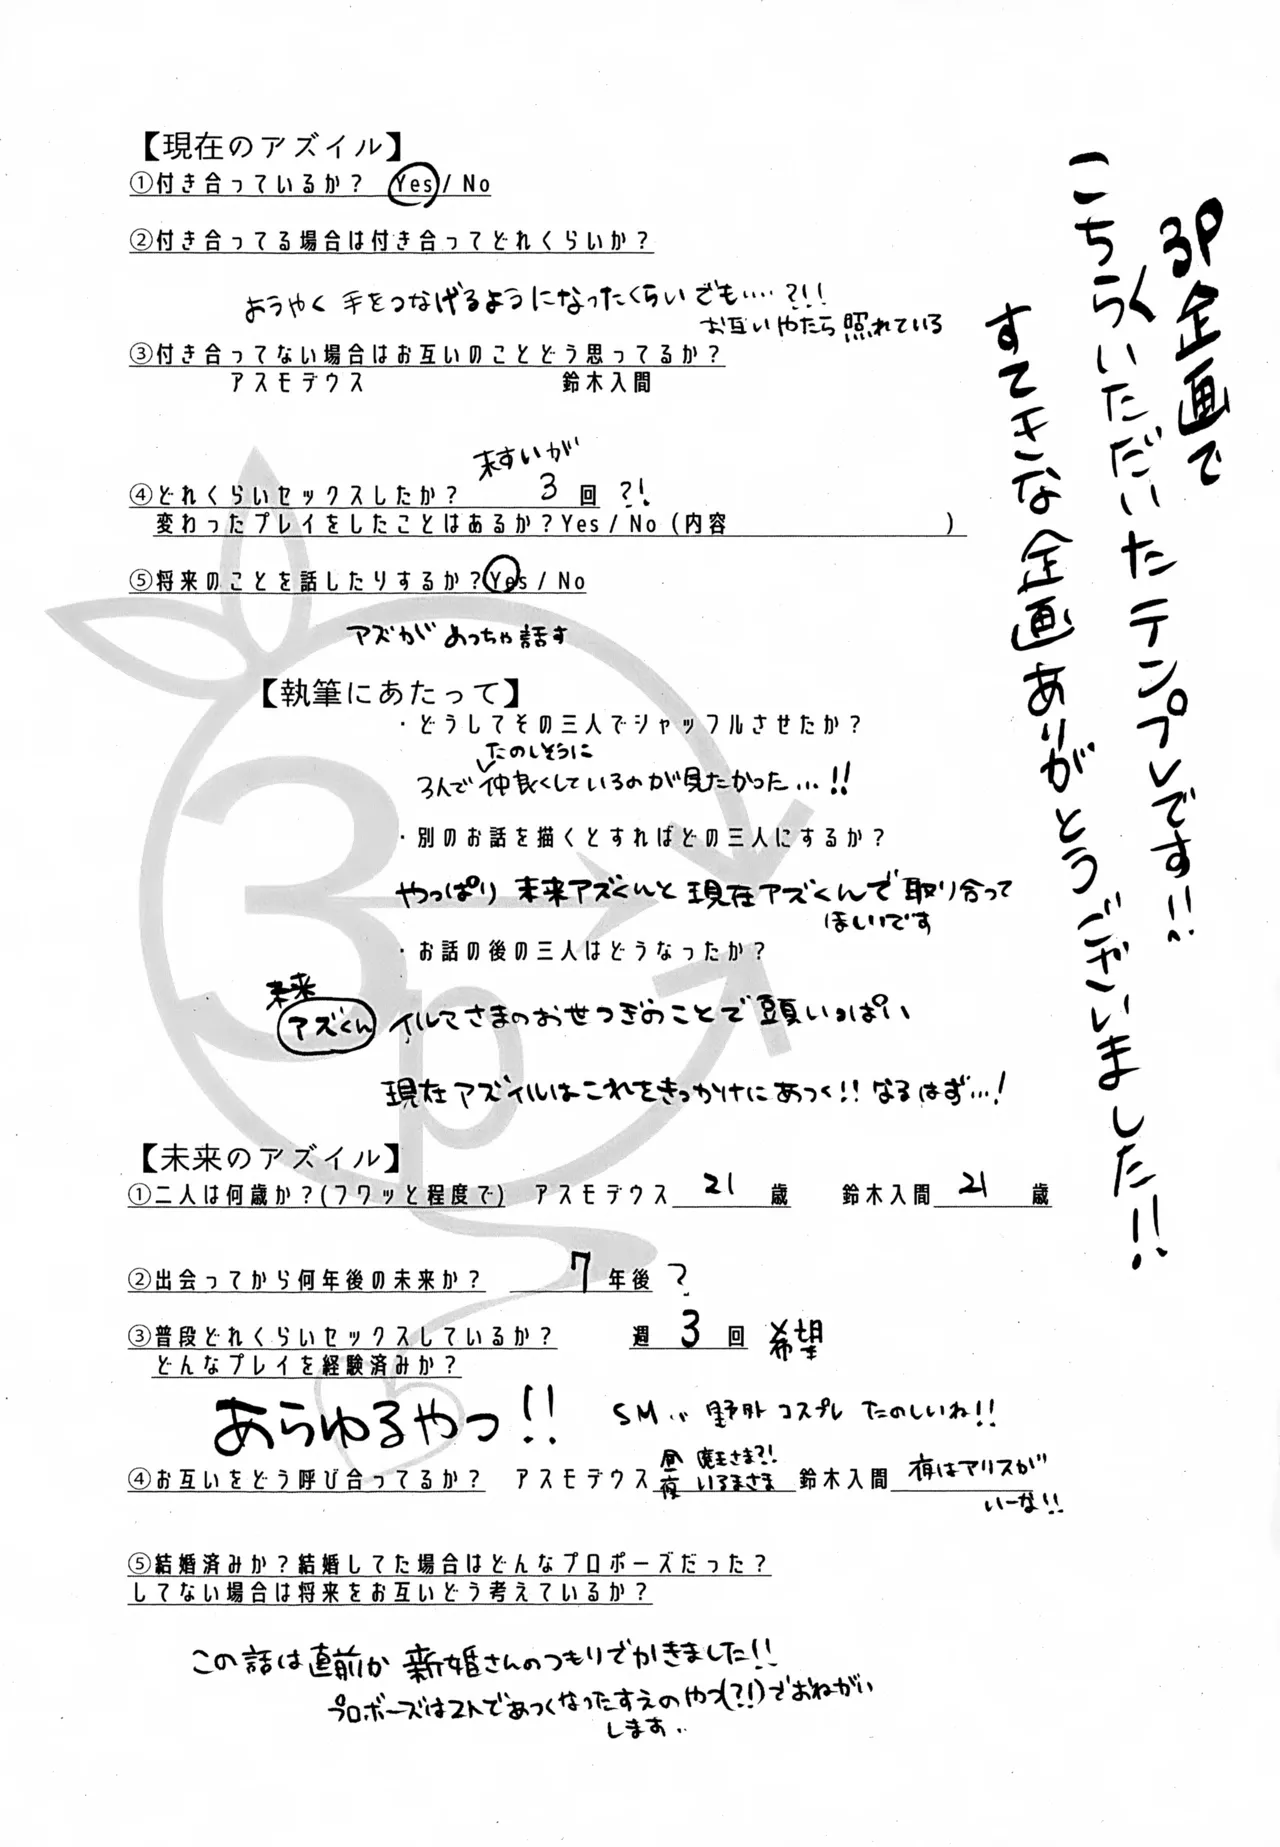 3P企画で
こちらいただいたテンプレです!!
すてきな企画ありがとうございました!!
【現在のアズイル】
①付き合っているか? Yes / No
②付き合ってる場合は付き合ってどれくらいか?
ようやく手をつなげるようになったくらいでも....?!!
お互いやたら照れている
③付き合ってない場合はお互いのことどう思ってるか?
アスモデウス 鈴木入間
④どれくらいセックスしたか? 未すいが 3 回 ?!
変わったプレイをしたことはあるか? Yes / No (内容 )
⑤将来のことを話したりするか? Yes / No
アズがめっちゃ話す
【執筆にあたって】
・どうしてその三人でシャッフルさせたか?
3人でたのしそうに仲良くしているのが見たかった...!!
・別のお話を描くとすればどの三人にするか?
やっぱり未来アズくんと現在アズくんで取り合って
ほしいです
・お話の後の三人はどうなったか?
未来
アズくん イルマさまのお世つぎのことで頭いっぱい
現在アズイルはこれをきっかけにあつく!!なるはず...!
【未来のアズイル】
①二人は何歳か?(フワッと程度で) アスモデウス 21 歳 鈴木入間 21 歳
②出会ってから何年後の未来か? 7 年後 ?
③普段どれくらいセックスしているか? 週 3 回 希望
どんなプレイを経験済みか?
あらゆるやつ!! SM.. 野外 コスプレ たのしいね!!
④お互いをどう呼び合ってるか? アスモデウス 昼 魔王さま?! 夜 いるまさま 鈴木入間 夜はアリスが
いーな!!
⑤結婚済みか?結婚してた場合はどんなプロポーズだった?
してない場合は将来をお互いどう考えているか?
この話は直前か新婚さんのつもりでかきました!!
プロポーズは2人であつくなったすえのやつ(?!)でおねがい
します..
3P